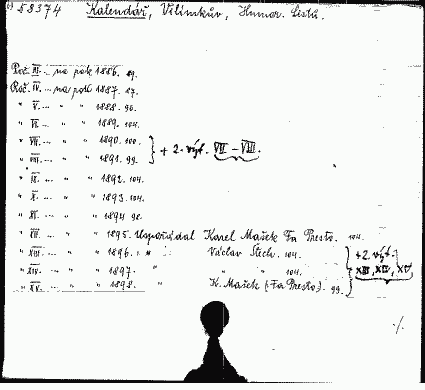 58374 Kalendář, Vilímkův, Humor. Listů.
Roč. III. .. na rok 1886. 89.
Roč. IV. .. na rok 1887. 87.
" V. .. " " 1888. 96.
" VI. .. " " 1889. 104.
" VII. .. " " 1890. 100.
" VIII. .. " " 1891. 99. } + 2. výt. VII – VIII.
" IX. .. " " 1892. 104.
" X. .. " " 1893. 104.
" XI. .. " " 1894. 98.
" XII. .. " " 1895. Uspořádal Karel Mašek Fa Presto. 104.
" XIII. .. " " 1896. " " Václav Štech. 104. } + 2. výt.
" XIV. .. " " 1897. " " " 104. XIII, XIV, XV
" XV. .. " " 1898. " K. Mašek (Fa Presto). 99.
./.